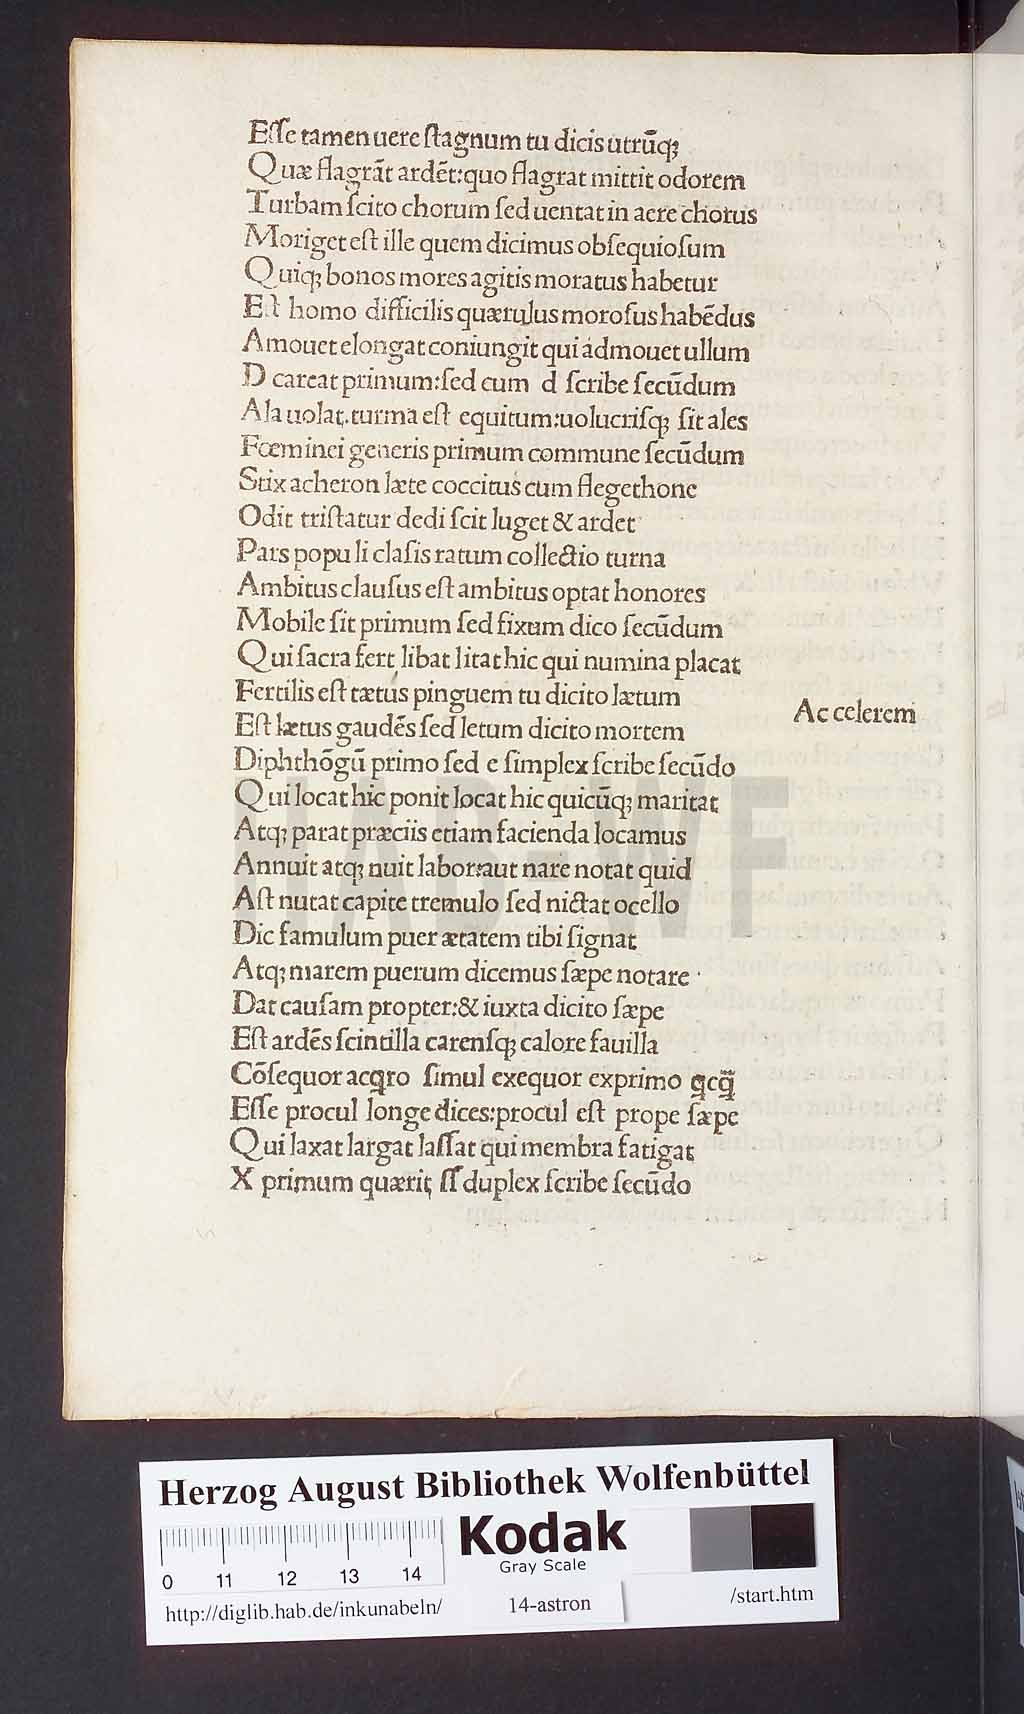 Eſſe tamen uere ſtagnum tu dicis utrūq;
Quæ flagrāt ardēt:quo flagrat mittit odorem
Turbam ſcito chorum ſed uentat in aere chorus
Moriget eſt ille quem dicimus obſequioſum
Quiq; bonos mores agitis moratus habetur
Eſt homo difficilis quærulus moroſus habēdus
Amouet elongat coniungit qui admouet ullum
D careat primum:ſed cum d ſcribe ſecūdum
Ala uolat.turma eſt equitum:uolucriſq; ſit ales
Fœminei generis primum commune ſecūdum
Stix acheron læte coccitus cum flegethone
Odit triſtatur dedi ſcit luget & ardet
Pars popu li claſis ratum collectio turna
Ambitus clauſus eſt ambitus optat honores
Mobile ſit primum ſed fixum dico ſecūdum
Qui ſacra fert libat litat hic qui numina placat
Fertilis eſt tætus pinguem tu dicito lætum
Accelerem
Eſt lætus gaudēs ſed letum dicito mortem
Diphthōgū primo ſed e ſimplex ſcribe ſecūdo
Qui locat hic ponit locat hic quicūq; maritat
Atq; parat præciis etiam facienda locamus
Annuit atq; nuit labor:aut nare notat quid
Aſt nutat capite tremulo ſed nictat ocello
Dic famulum puer ætatem tibi ſignat
Atq; marem puerum dicemus ſæpe notare
Dat cauſam propter:& iuxta dicito ſæpe
Eſt ardēs ſcintilla carenſq; calore fauilla
Cōſequor acꝗro ſimul exequor exprimo
Eſſe procul longe dices:procul eſt prope ſæpe
Qui laxat largat laſſat qui membra fatigat
X primum quærit ſſ duplex ſcribe ſecūdo
HAB-WF
Herzog August Bibliothek Wolfenbüttel
Kodak
Gray Scale
0 11 12 13 14
http://diglib.hab.de/inkunabeln/ 14-astron /start.htm